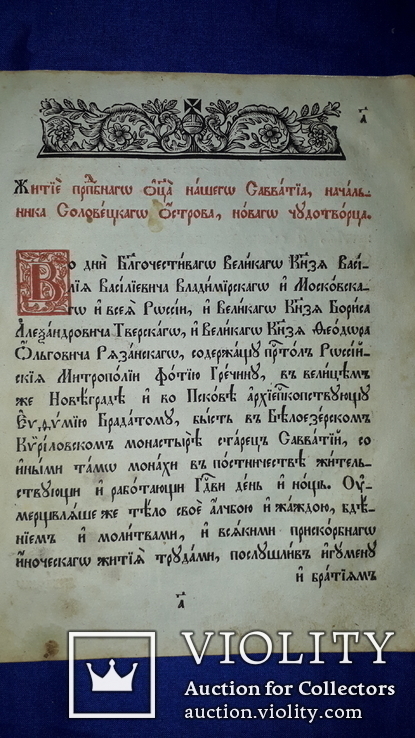 а҃
Житїѐ прпⷣбнагѡ ѻ҆ц҃а̀ на́шегѡ Савва́тїа, нача́ль-
ника Солове́цкагѡ Ѻ҆́строва, но́вагѡ чꙋдотво́рца.
Во дни̑ Бл҃гочести́вагѡ Вели́кагѡ Кн҃зѧ Васі́-
лїѧ Васі́лїевича Влади́мїрскагѡ и҆ Моско́вска-
гѡ и҆ всеѧ̀ Рѡссі́и, и҆ Вели́кагѡ Кн҃зѧ Бори́са
Алеѯа́ндровича Тверска́гѡ, и҆ Вели́кагѡ Кн҃зѧ Ѳео́дѡра
Ѻ҆́льговича Рѧза́нскагѡ, содержа́щꙋ прⷭ҇то́лъ Рѡссі́й-
скїѧ Митропо́лїи Фо́тїю Гре́чинꙋ, въ вели́цѣмъ
же Новѣ́градѣ и҆ во Пско́вѣ а҆рхїепⷭ҇копствꙋющꙋ
Е҆ѵѳѵ́мїю Брада́томꙋ, бы́сть въ Бѣлоезе́рскомъ
Кѷрі́ловскомъ монастырѣ̀ ста́рецъ Савва́тїй, со
и҆ны́ми та́мѡ мона́хи въ по́стничествѣ жи́тель-
ствꙋющи и҆ рабо́тающи Гдⷭ҇ви де́нь и҆ но́щь. Оу҆-
мерщвлѧ́ше же тѣ́ло своѐ а҆́лчбою и҆ жа́ждою, бдѣ́-
нїемъ и҆ моли́твами, и҆ всѧ́кими приско́рбнагѡ
и҆́ноческагѡ житїѧ̀ трꙋда́ми, послꙋшли́въ и҆гꙋ́менꙋ
и҆ бра́тїѧмъ
а҃
VIOLITY
Auction for Collectors
auction.violity.com